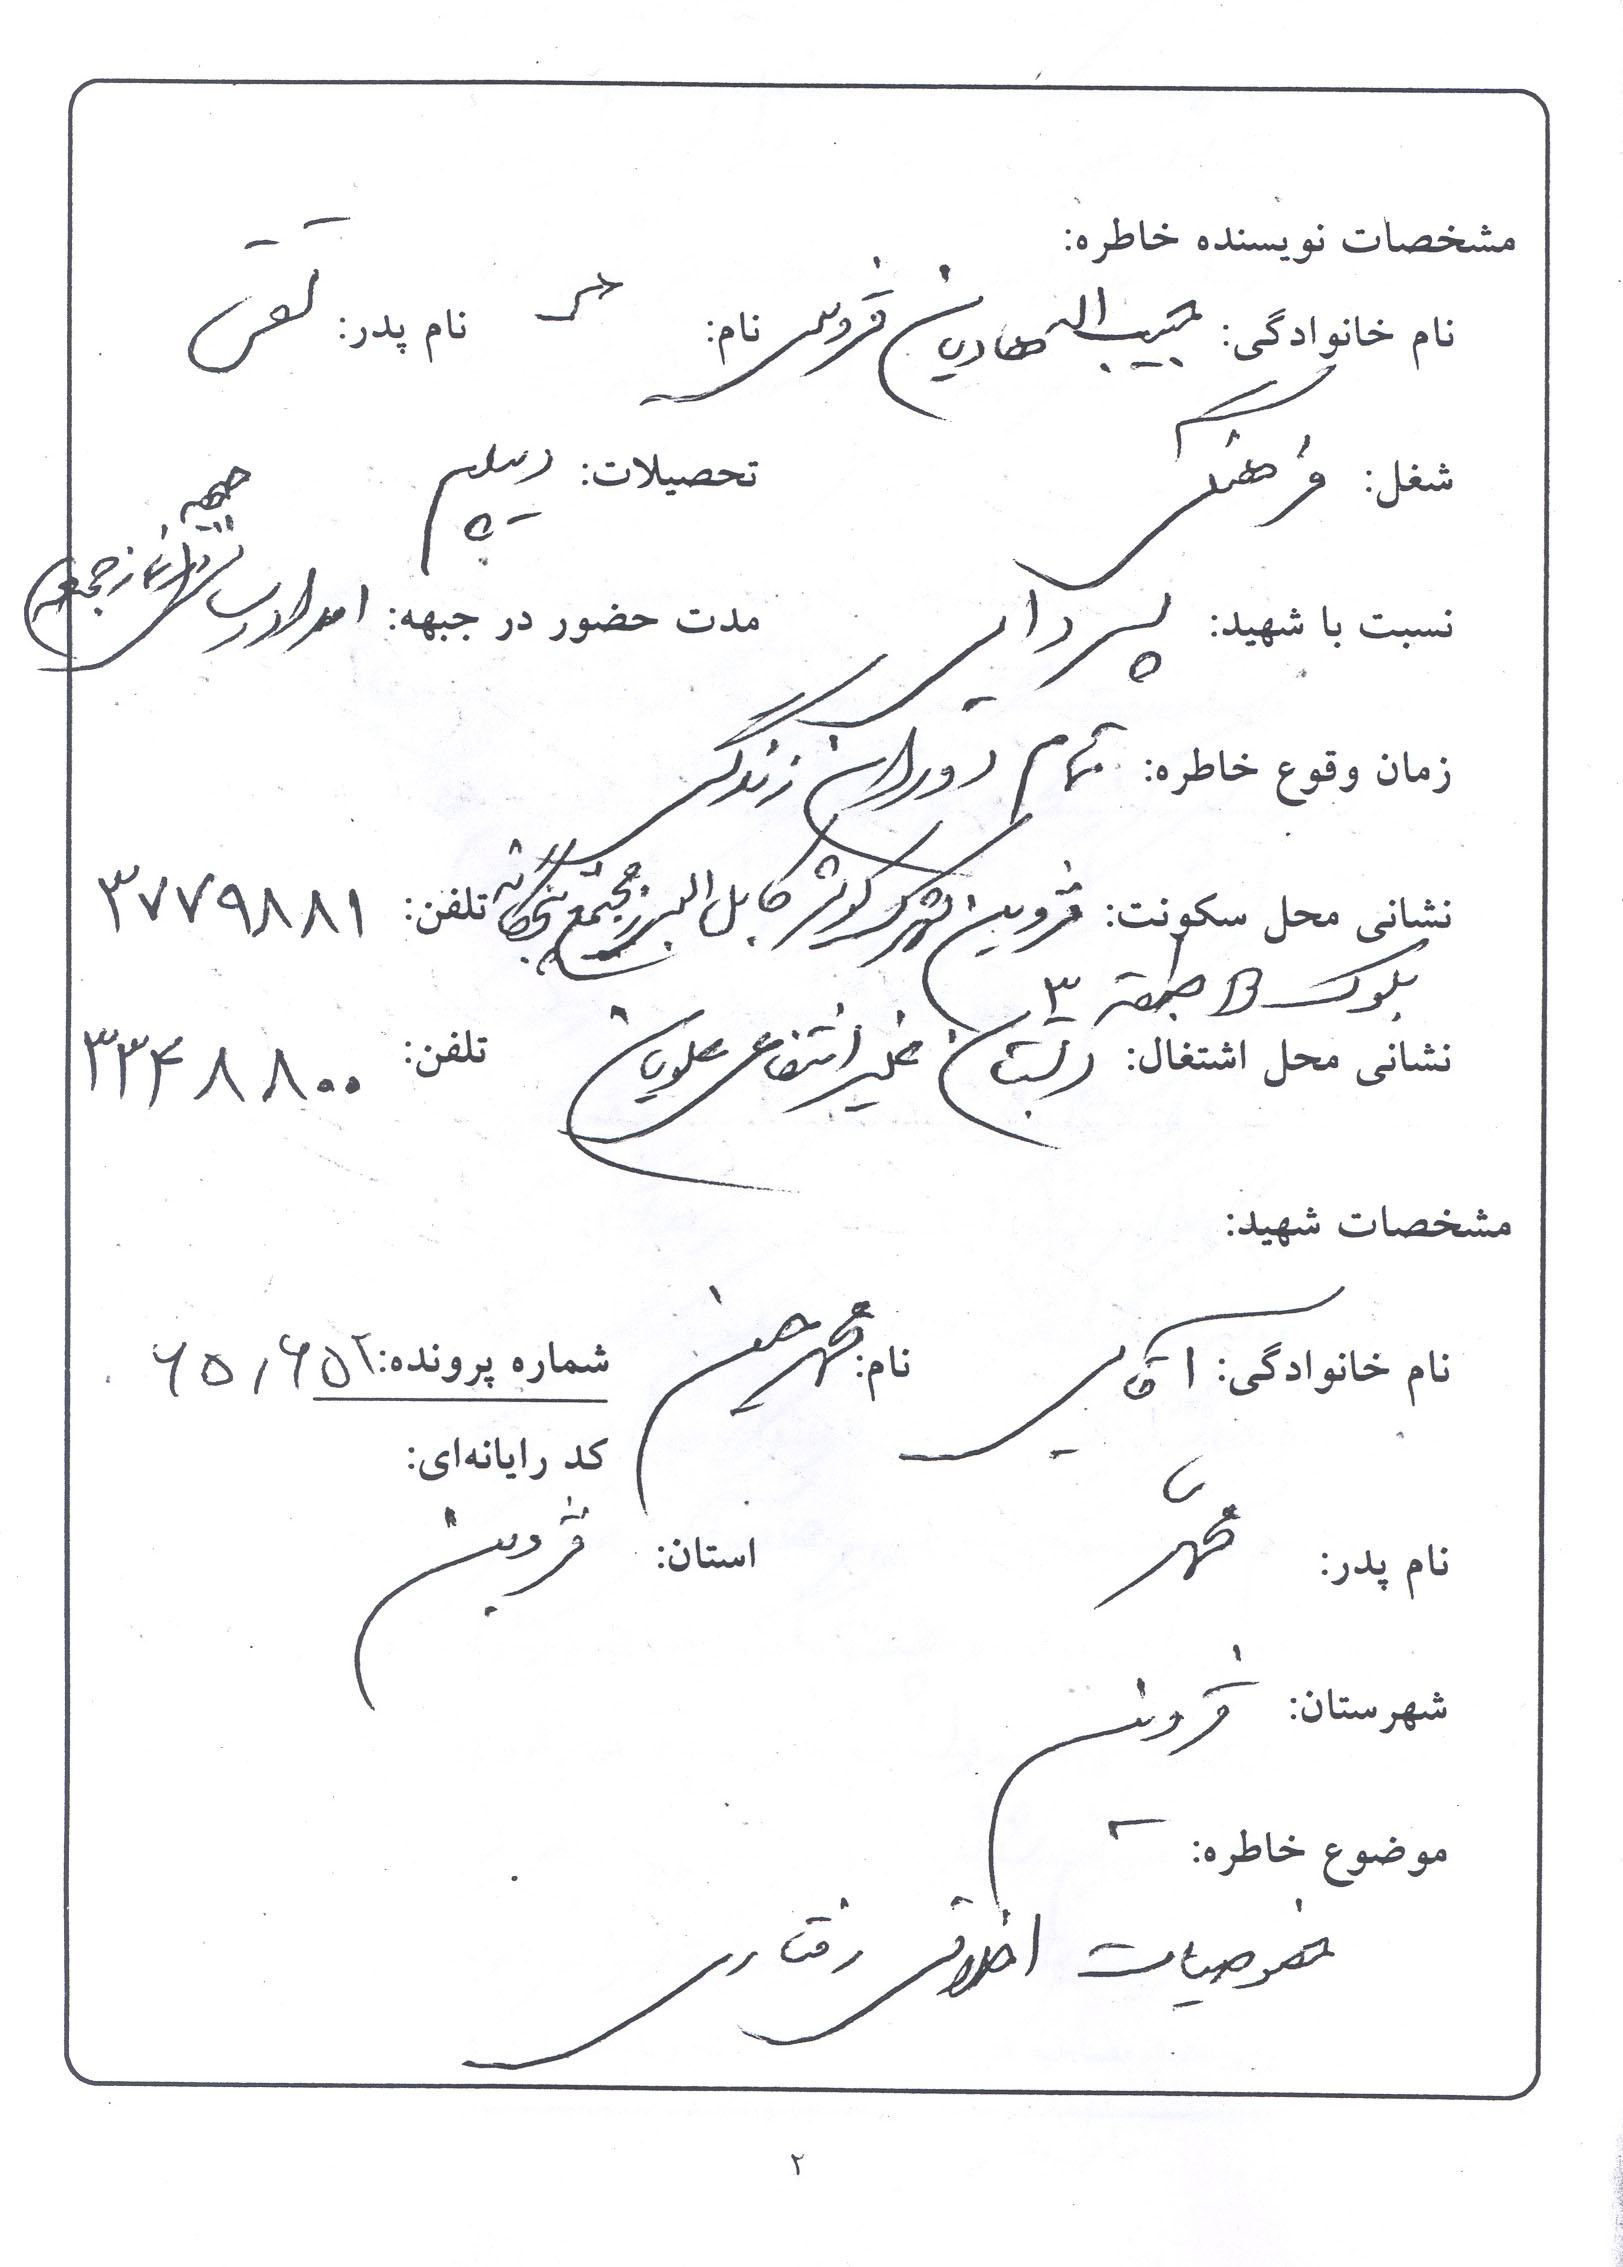 مشخصات نویسنده خاطره:
نام خانوادگی: حبیب اله هادیان قزوینی نام: نام پدر: تقی
شغل: فرهنگی تحصیلات: دیپلم
نسبت با شهید: پسر دایی مدت حضور در جبهه: امدادرسانی نماز جمعه جبهه
زمان وقوع خاطره: تمام دوران زندگی
نشانی محل سکونت: قزوین شهرک کوثر کابل البرز مجتمع تلفن: ۳۷۷۹۸۸۱
بلوک B طبقه ۳
نشانی محل اشتغال: دبستان غیرانتفاعی علویان تلفن: ۳۳۴۸۸۰۰
مشخصات شهید:
نام خانوادگی: آقایی نام: محمدحسین شماره پرونده:
کد رایانه‌ای:
نام پدر: محمد استان: قزوین
شهرستان: قزوین
موضوع خاطره:
خصوصیات اخلاقی رفتاری
۲